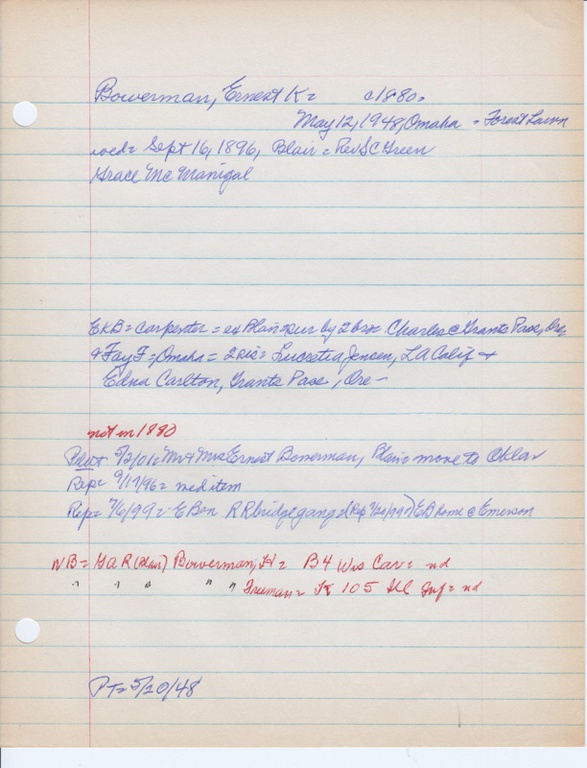 Bowerman, Ernest K = c1880=
May 12, 1948, Omaha = Forest Lawn
wed= Sept 16, 1896, Blair = Rev S C Green
Grace McManigal
EKB = carpenter = ex Blair = sur by 2 bro= Charles @ Grants Pass, Ore
& Fay F=, Omaha = 2 sis= Lucretia Jensen, LA Calif +
Edna Carlton, Grants Pass, Ore -
not in 1880
5/2/01= Mr & Mrs Ernest Bowerman, Blair= move to Okla
Rep= 9/17/96= wed item
Rep= 7/6/99= E Bon RR bridge gang (Rep 7/20/99) EB home @ Emerson
NB= GAR (Blair) Bowerman, H= B4 Wis Cav= nd
" " " " " Freeman= K 105 Ill Inf= nd
PT= 5/20/48